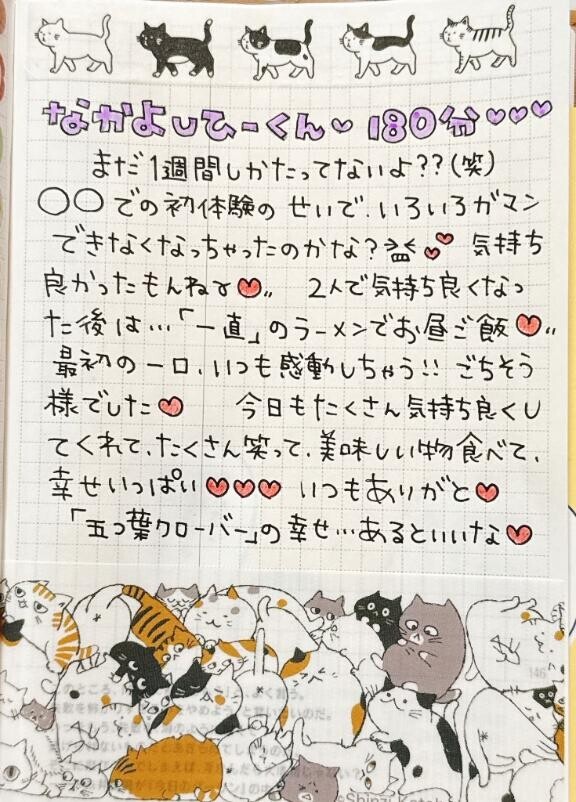 なかよしひーくん♡ 180分♡♡♡
まだ1週間しかたってないよ??(笑)
○○での初体験のせいで、いろいろガマン
できなくなっちゃったのかな? 気持ち
良かったもんねぇ♥〃 2人で気持ち良くなっ
た後は…「一直」のラーメンでお昼ご飯♥〃
最初の一口、いつも感動しちゃう!! ごちそう
様でした♥ 今日もたくさん気持ち良くし
てくれて、たくさん笑って、美味しい物食べて、
幸せいっぱい♥♥♥ いつもありがと♥
「五つ葉クローバー」の幸せ…あるといいな♥
146